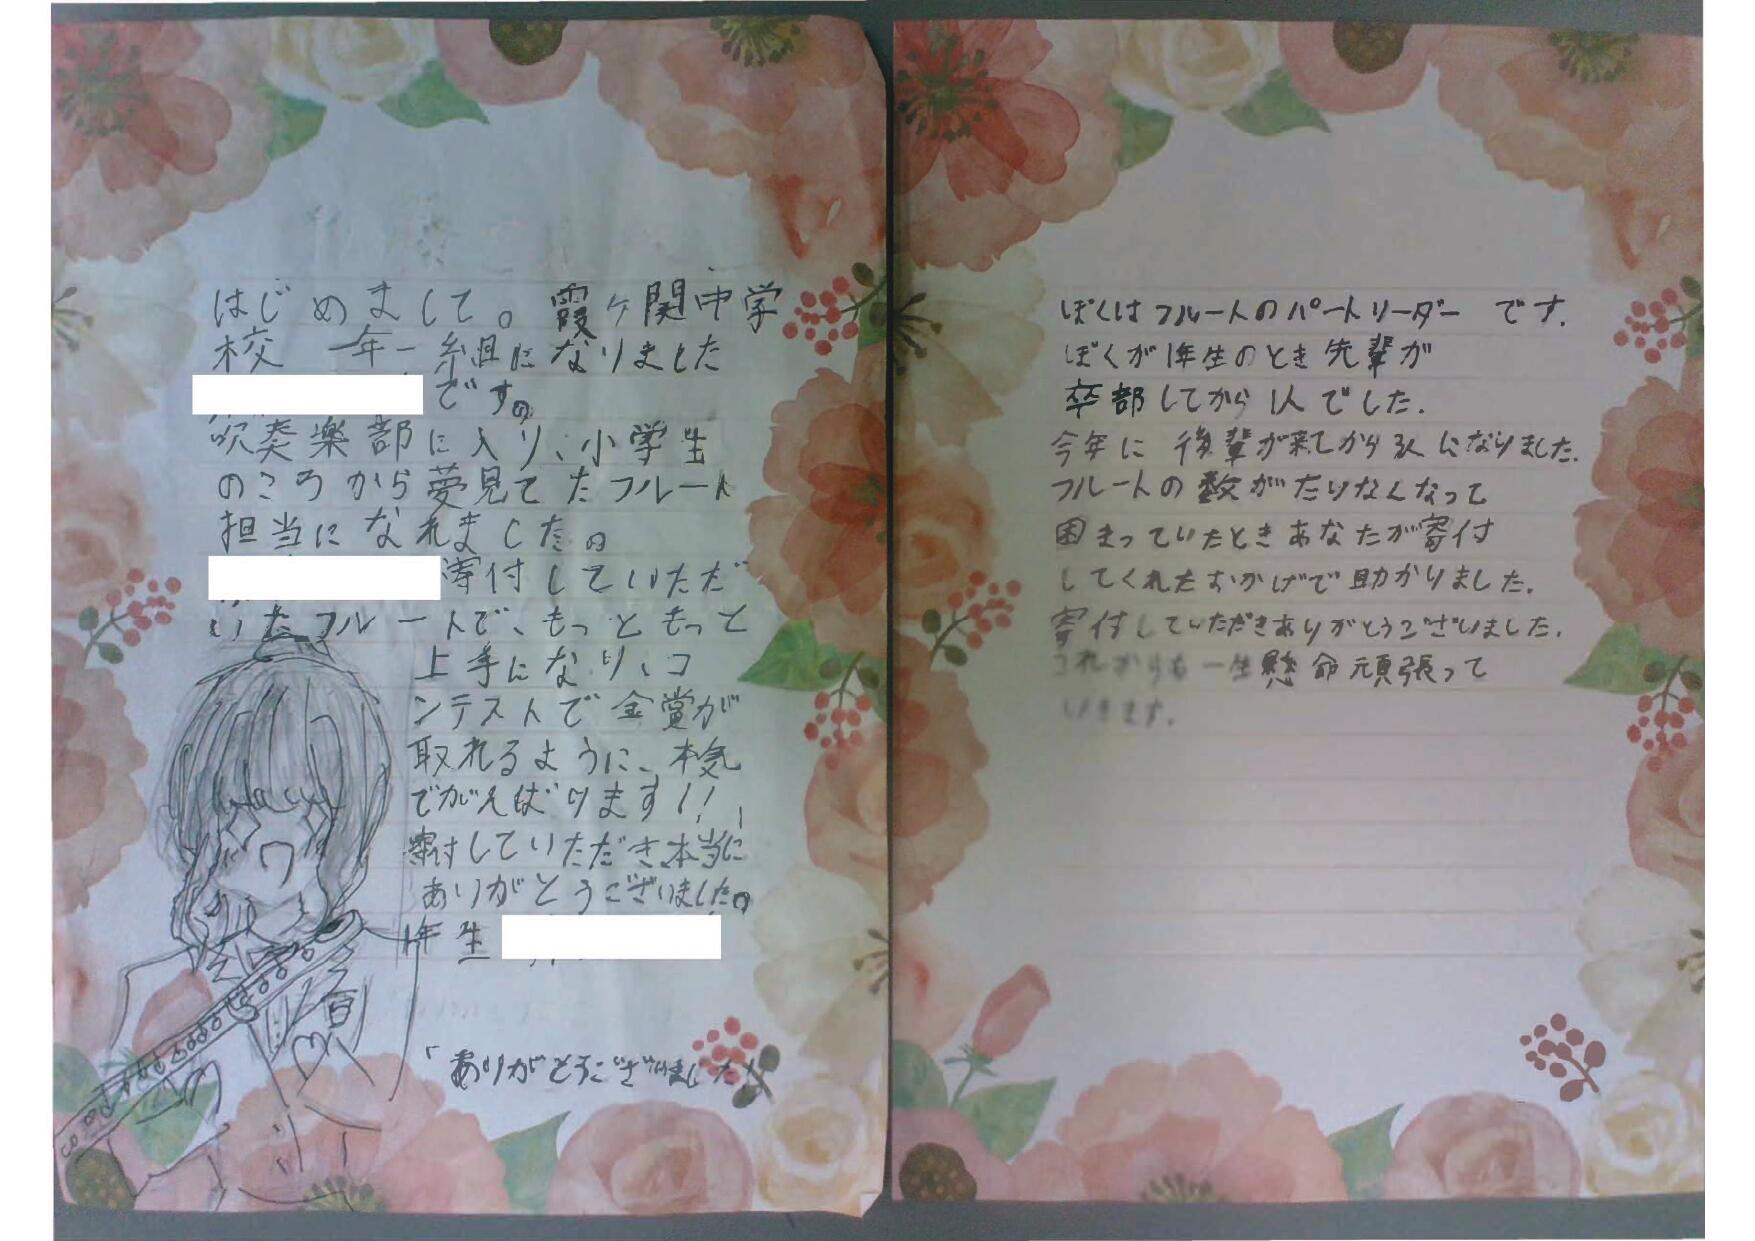 はじめまして。霞ヶ関中学
校 一年一組になりました
です。
吹奏楽部に入り、小学生
のころから夢見てたフルート
担当になれました。
寄付していただ
いたフルートで、もっともっと
上手になり、コ
ンテストで金賞が
取れるように、本気
でがんばります!!
寄付していただき、本当に
ありがとうございました。
1年生
「ありがとうございました!」
ぼくはフルートのパートリーダーです.
ぼくが1年生のとき先輩が
卒部してから1人でした.
今年に後輩が来てから3人になりました.
フルートの数がたりなくなって
困まっていたときあなたが寄付
してくれたおかげで助かりました.
寄付していただきありがとうございました.
これからも一生懸命頑張って
いきます.